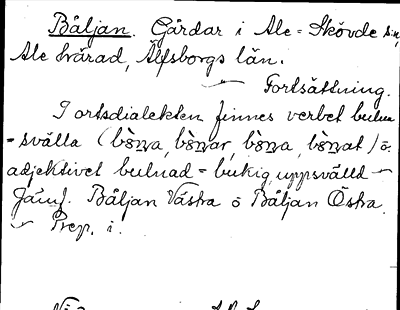 Båljan. Gårdar i Ale-Skövde sn,
Ale härad, Älfsborgs län.
Fortsättning.
I ortsdialekten finnes verbet bulna
= svälla ( ) o.
adjektivet bulnad = bukig, uppsvälld —
Jämf. Båljan Västra o Båljan Östra.
— Prep. i.